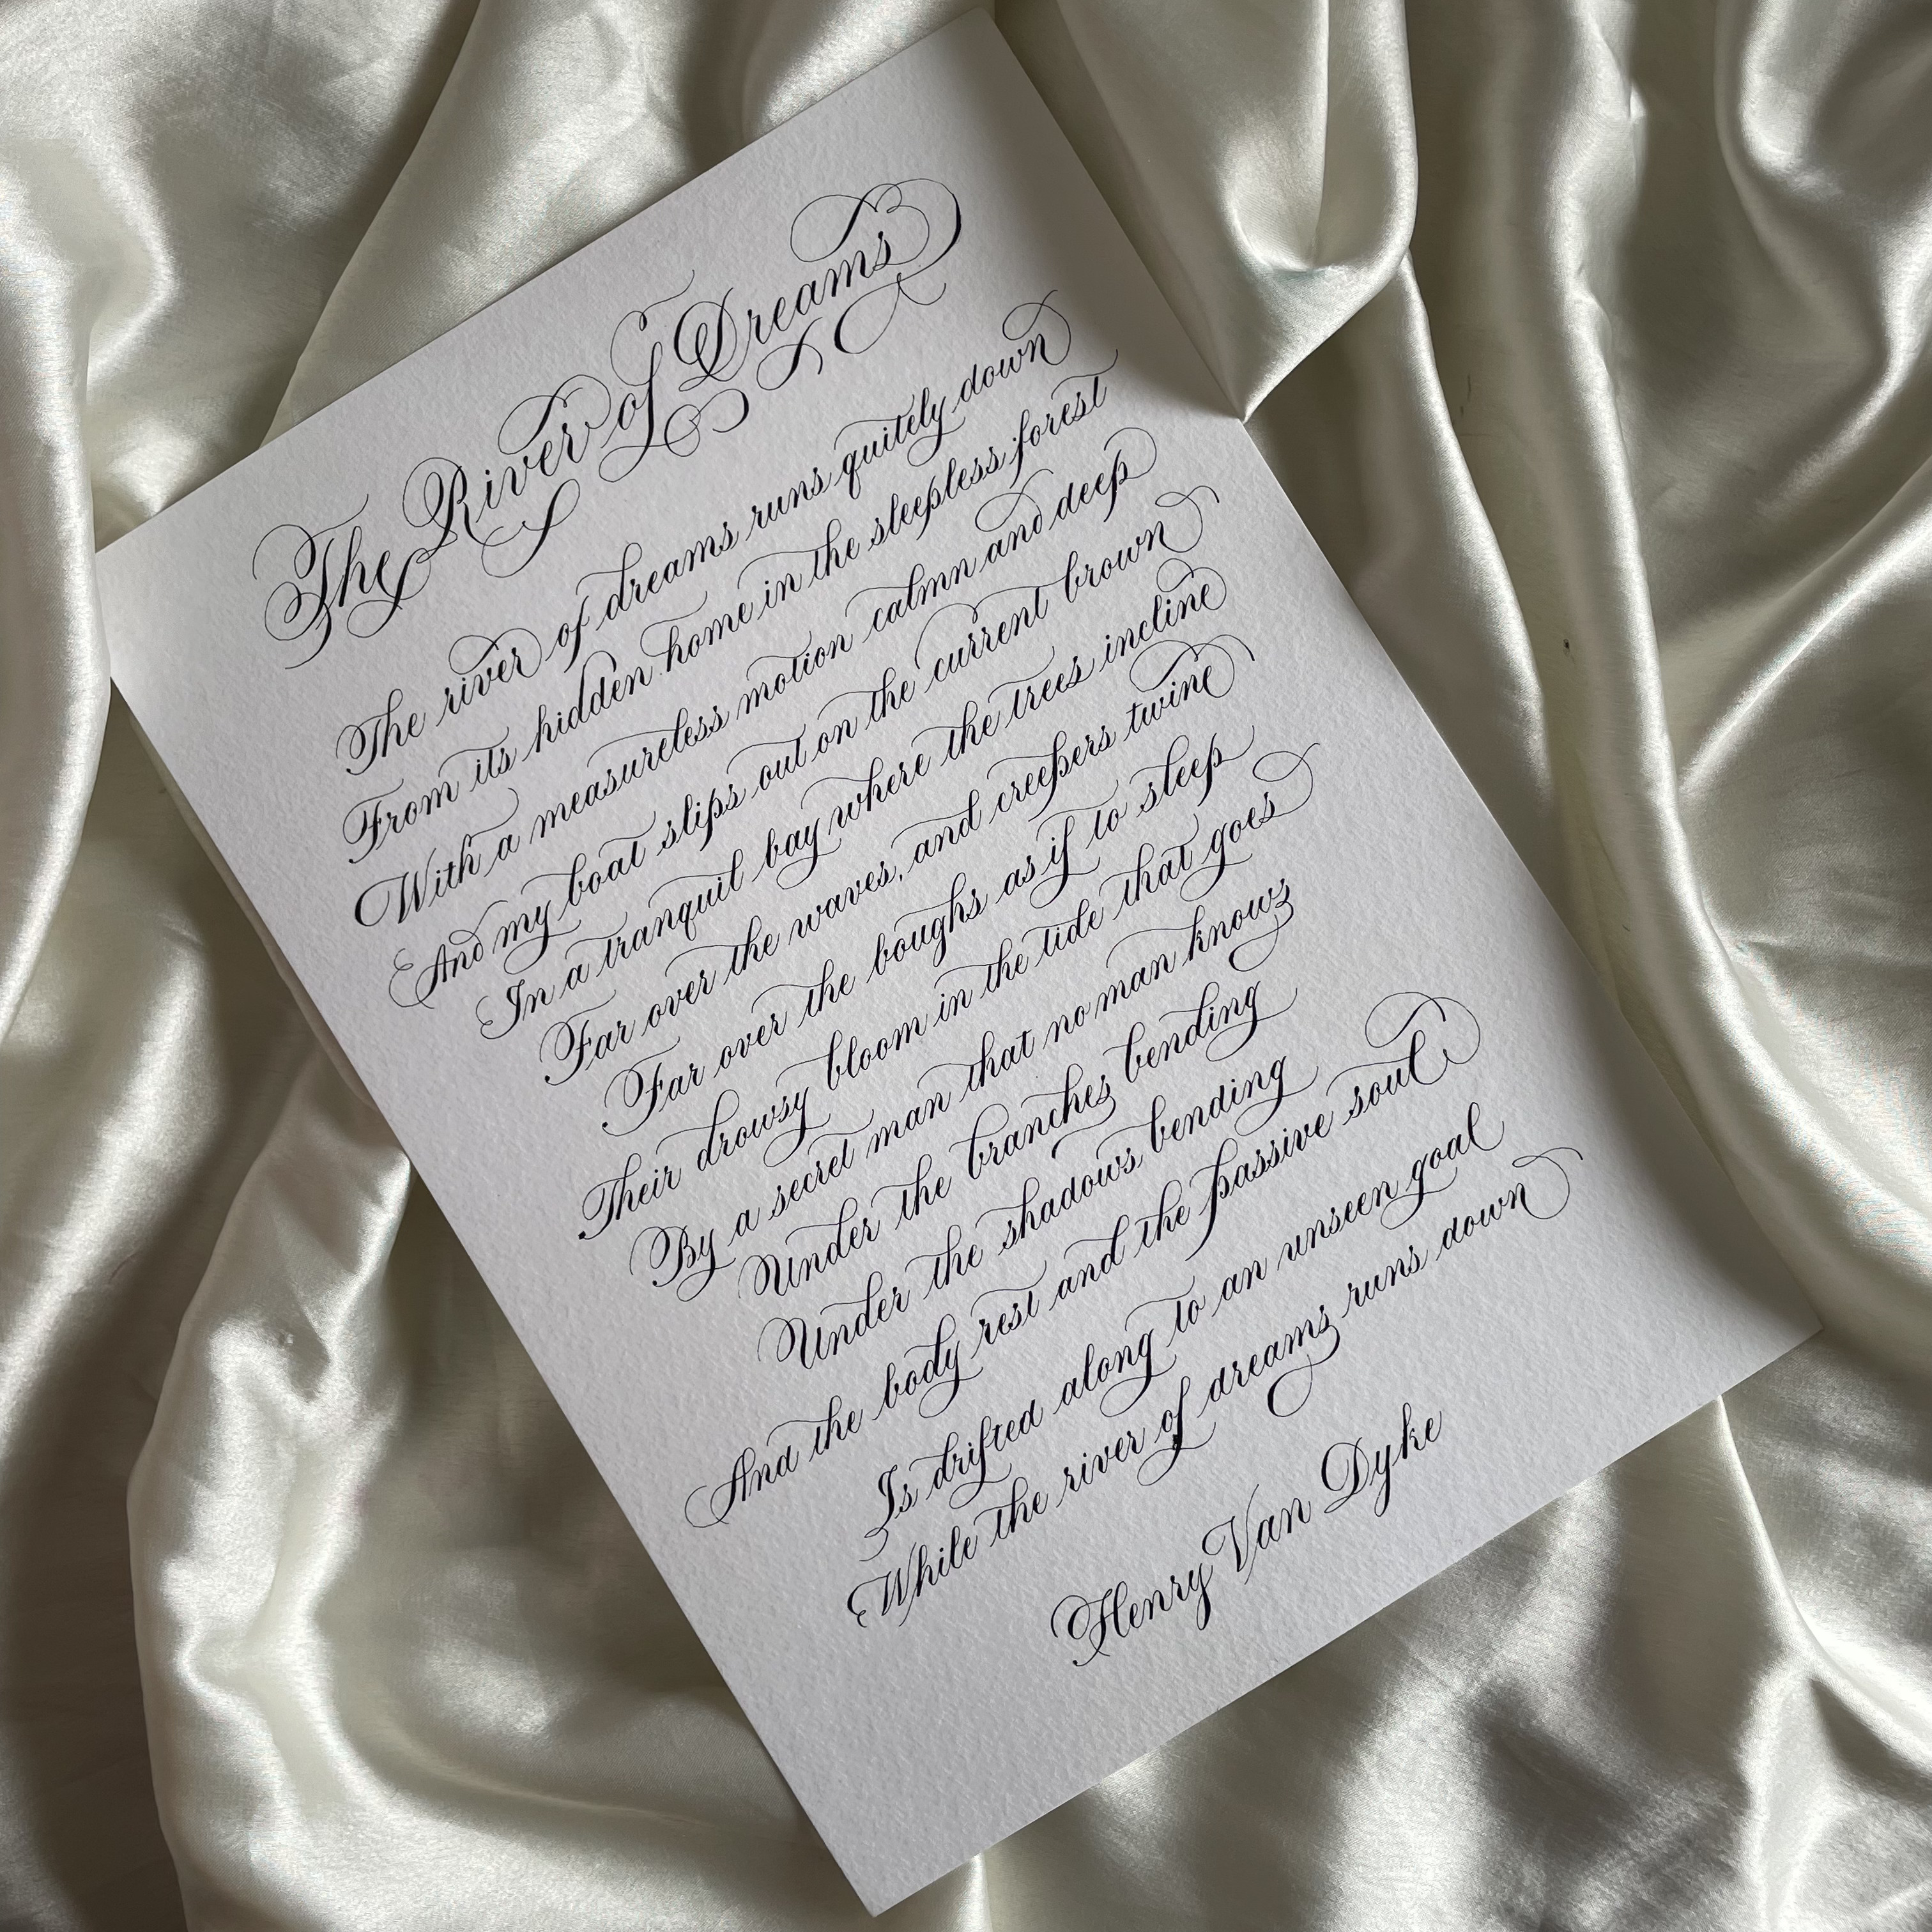 The River of Dreams
The river of dreams runs quitely down
From its hidden home in the sleepless forest
With a measureless motion calmn and deep
And my boat slips out on the current brown
In a tranquil bay where the trees incline
Far over the waves, and creepers twine
Far over the boughs as if to sleep
Their drowsy bloom in the tide that goes
By a secret man that no man knows
Under the branches bending
Under the shadows bending
And the body rest and the passive soul
Is drifted along to an unseen goal
While the river of dreams runs down
Henry Van Dyke